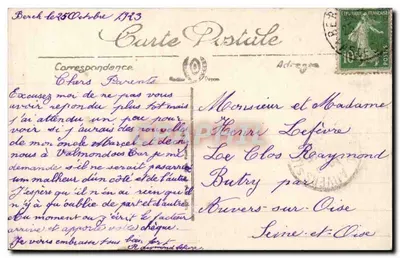 Berck le 25 Octobre 1923
Carte Postale
Correspondance
Adresse
Chers Parents
Excusez moi de ne pas vous
avoir répondu plus tôt mais
j'ai attendu un peu pour
voir si j'aurais des nouvelles
de mon oncle Marcel et de
nous à Valmondois Car je me
demande s'il ne serait pas arrivé
un malheur d'un côté et de l'autre
J'espère qu'il n'en ai rien qu'il
n'y a qu'oublie de part et d'autre
Au moment ou j'écrit le facteur
arrive et apporte votre chèque.
Je vous embrasse tous bien fort
Monsieur et Madame
Henri Lefèvre
Le Clos Raymond
Butry par
Auvers-sur-Oise
Seine-et-Oise